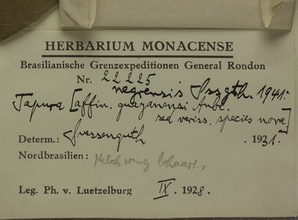 HERBARIUM MONACENSE
Brasilianische Grenzexpeditionen General Rondon
Nr. 22225
negrensis Sszgth 1941.
Tapura [affin. guyanensi Aubl.
sed veriss. species nova]
Determ.: Suessenguth . 1931.
Nordbrasilien:
Leg. Ph. v. Luetzelburg IX. 1928.